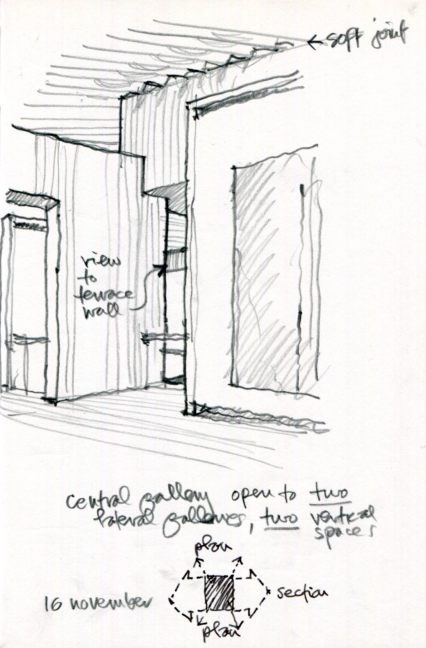 ← soft joint
view
to
terrace
wall
central gallery open to two
lateral galleries, two vertical
spaces
plan
16 november
section
plan